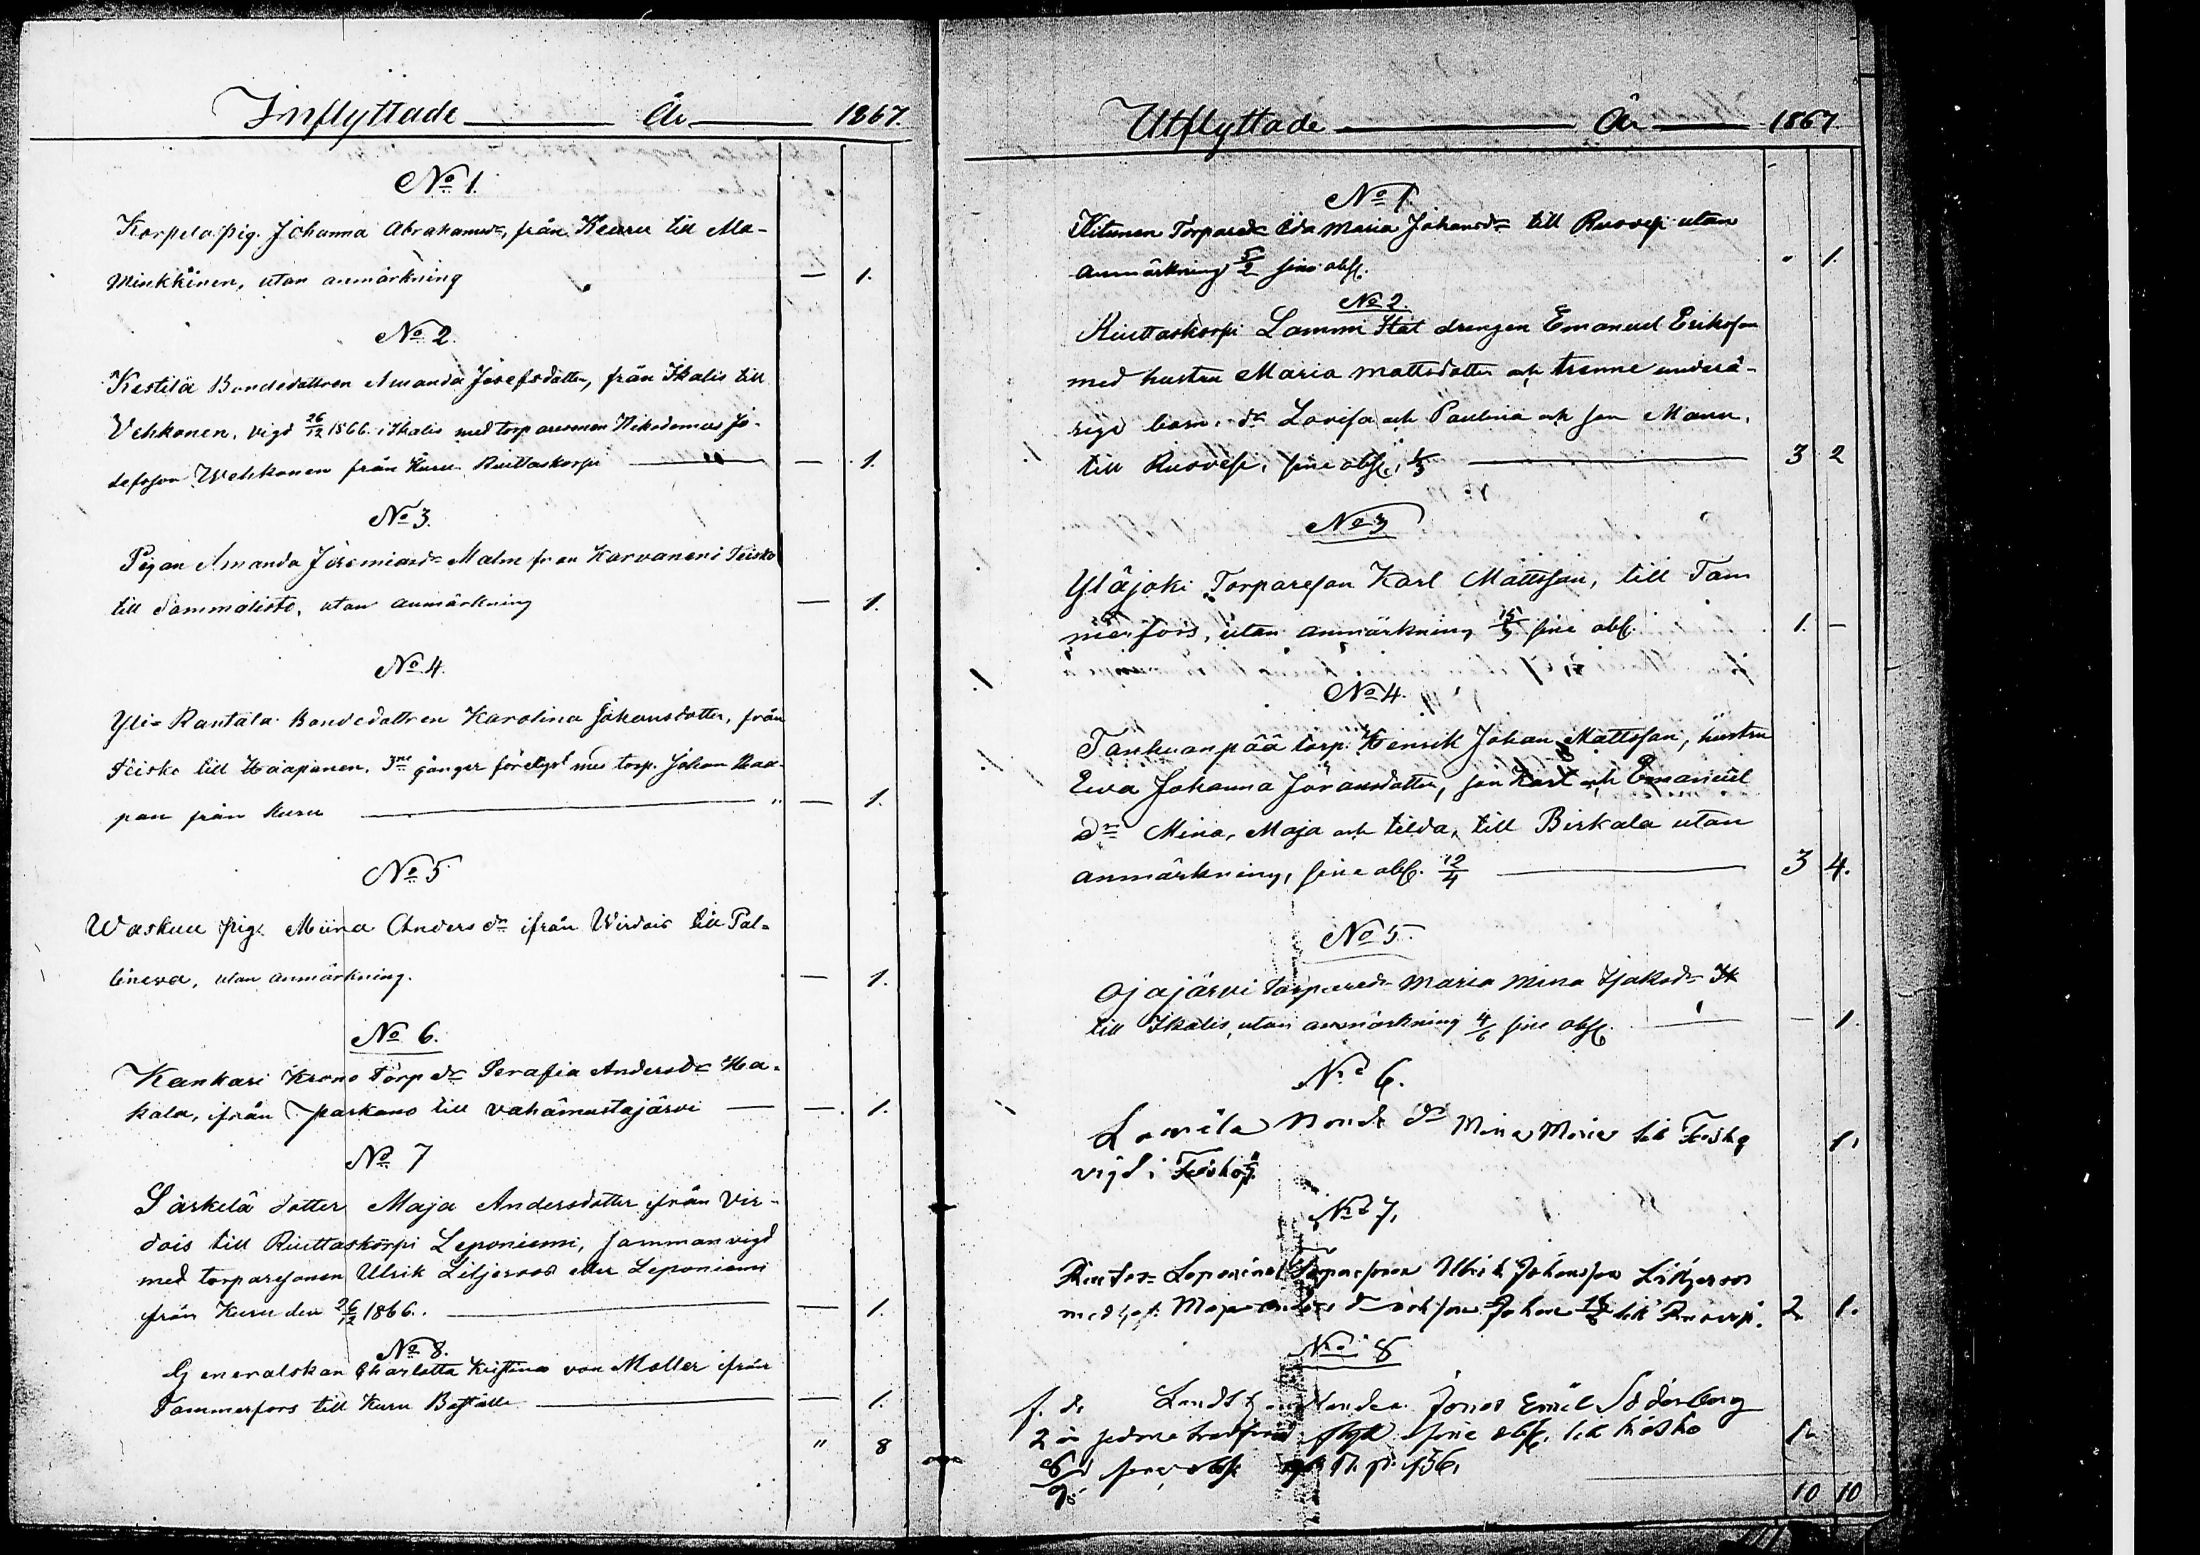 Inflyttade År 1867.
No 1.
Korpela pig. Johanna Abrahamsdr, från Keuru till Ma-
Minkkinen, utan anmärkning — 1.
No 2.
Kestilä Bondedottren Amanda Josefsdotter, från Ikalis till
Vehkonen, vigd 26/12 1866 i Ikalis med torparesonen Nikodemus Jo-
sefsson Wehkonen från Kuru Riuttaskorpi — 1.
No 3.
Pigan Amanda Jeremiasdr Malm från Karvanen i Teisko
till Sammalisto, utan anmärkning — 1.
No 4.
Yli-Rantala Bondedottren Karolina Johansdotter, från
Teisko till Haapanen, 3ne gånger förelyst med torp. Johan Haa-
pan från Kuru — 1.
No 5
Waskuu pig. Miina Andersdr ifrån Wirdois till Pal-
lineva, utan anmärkning. — 1.
No 6.
Kankari Krono Torp dr Serafia Andersdr Ha-
kala, ifrån Parkano till vahämustajärvi — 1.
No 7
Särkelä dotter Maja Andersdotter ifrån Vir-
dois till Riuttaskorpi Leponiemi, sammanvigd
med torparesonen Ulrik Liljeroos eller Leponiemi
från Kuru den 26/12 1866. — 1.
No 8.
Generalskan Charlotta Kristina von Moller ifrån
Tammerfors till Kuru Boställe — 1.
" 8
Utflyttade År 1867
No 1
Kitunen Torparedr Eda Maria Johansdr till Ruovesi utan
anmärkning 5/2 sine obs. 1.
No 2.
Riuttaskorpi Lammi Stat drengen Emanuel Eriksson
med hustru Maria Mattsdotter och trenne underå-
rige barn, dr Lovisa och Paulina och son Manu,
till Ruovesi, sine obs. 1/3 — 3 2
No 3
Yläjoki Torpareson Karl Mattsson, till Tam
merfors, utan anmärkning 15/3 sine obs. 1. —
No 4.
Tankuanpää torp. Henrik Johan Mattsson, hustru
Eva Johanna Göransdotter, son Karl och Emanuel
dr Mina, Maja och Tilda, till Birkala utan
anmärkning, sine obs. 12/4 — 3 4.
No 5.
Ojajärvi torparedr Maria Mina Isaksdr Ik
till Ikalis, utan anmärkning 4/6 sine obs. — 1.
No 6.
dr Mina Maria till Teisko 1.
vigd i Teisko
No 7.
Leponiemi Torparesonen Ulrik Johansson Liljeroos
med hust. Maja Anders dr och son Johan till Ruovesi. 2 1.
No 8
f. d. Jonas Emil Söderberg
2 år sine obs. till Teisko 1.
p. 136.
10 10